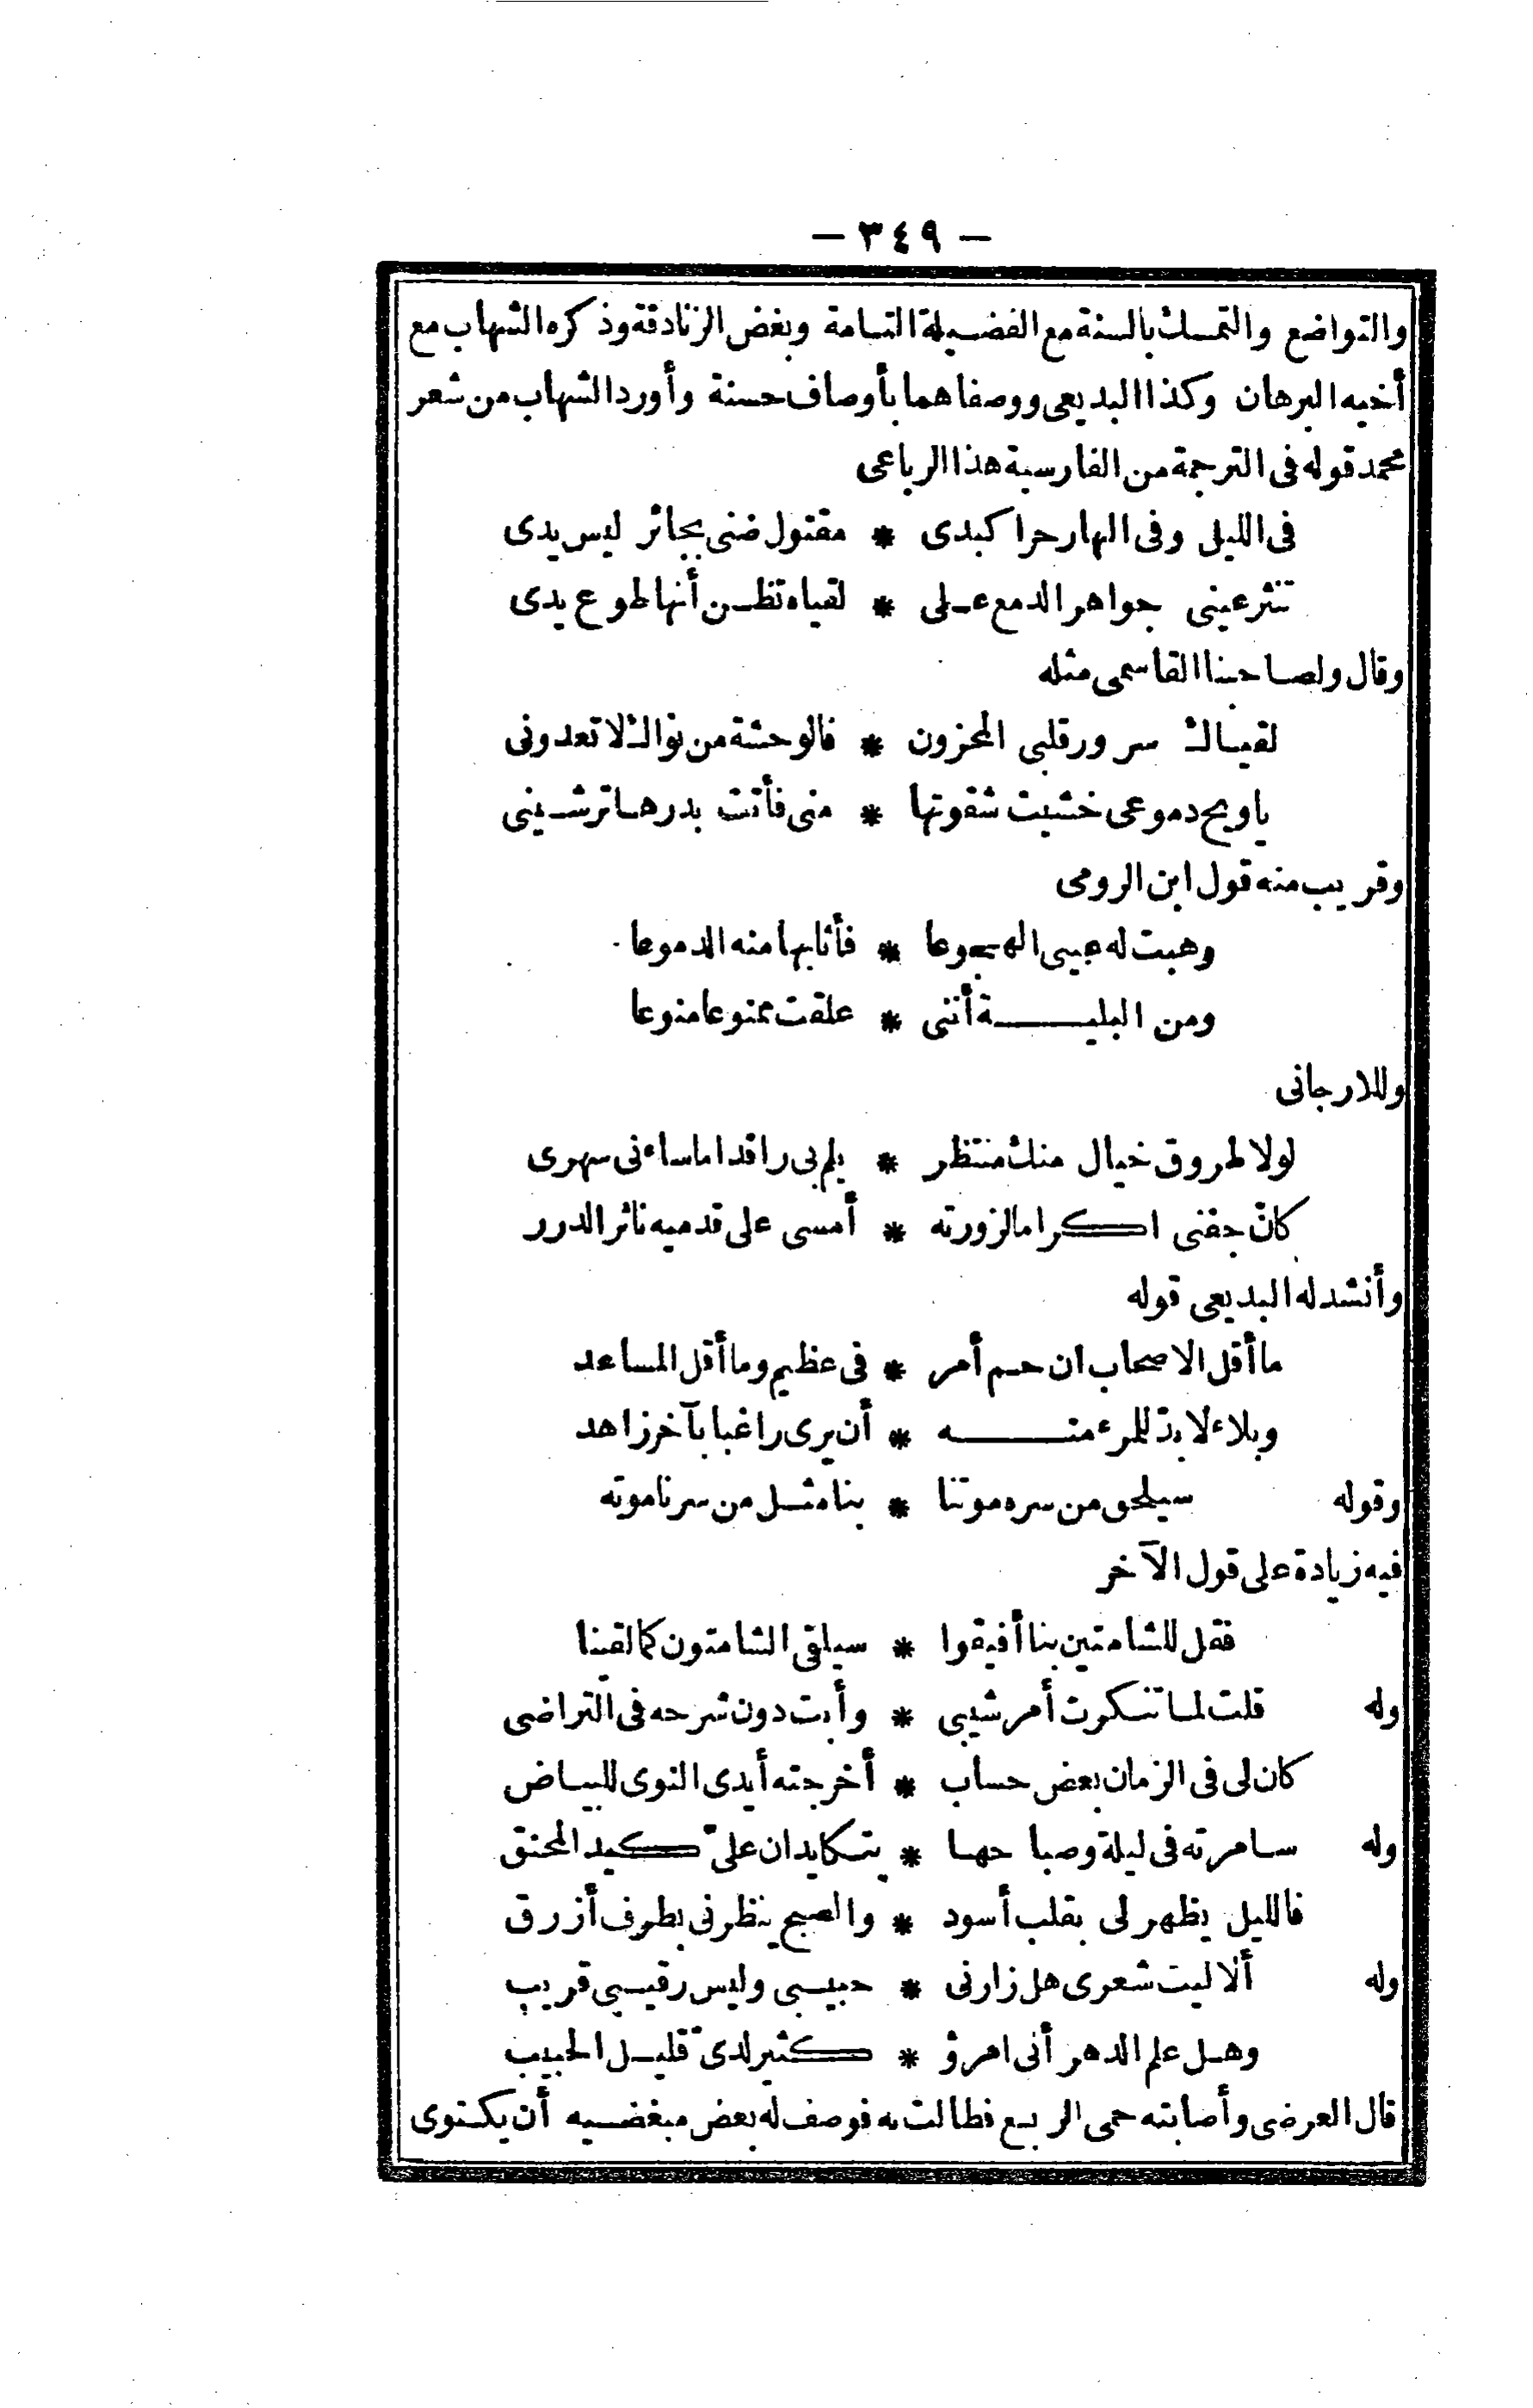 — ٣٤٩ —
والتواضع والتمسك بالسنة مع الفضيلة التامة وبغض الزنادقة وذكره الشهاب مع
أخيه البرهان وكذا البديعى ووصفاهما بأوصاف حسنة وأورد الشهاب من شعر
محمد قوله فى الترجمة من الفارسية هذا الرباعى
فى الليل وفى النهار حرا كبدى * مقتول ضنى بجائر ليس يدى
تنثر عينى جواهر الدمع على * لقياه تظن أنها طوع يدى
وقال ولصاحبنا القاسمى مثله
لقياك سرور قلبى المحزون * فالوحشة من نواك لا تعدونى
ياويح دموعى خشيت شقوتها * منى فأتت بدرها ترشينى
وقريب منه قول ابن الرومى
وهبت له عينى الهجوعا * فأثابها منه الدموعا
ومن البلية أننى * علقت ممنوعا منوعا
وللارجانى
لولا طروق خيال منك منتظر * يلم بى راقدا ما ساءنى سهرى
كانّ جفنى اكراما لزورته * أمسى على قدميه ناثر الدرر
وأنشد له البديعى قوله
ما أقل الاصحاب ان حم أمر * فى عظيم وما أقل المساعد
وبلاء لا بدّ للمرء منه * أن يرى راغبا بآخر زاهد
وقوله سيلحق من سره موتنا * بنا مثل من سرنا موته
فيه زيادة على قول الآخر
فقل للشامتين بنا أفيقوا * سيلقى الشامتون كما لقينا
وله قلت لما تنكرت أمر شيبى * وأبت دون شرحه فى التراضى
كان لى فى الزمان بعض حساب * أخرجته أيدى النوى للبياض
وله سامرته فى ليلة وصباحها * يتكايدان علىّ كيد المحنق
فالليل يظهر لى بقلب أسود * والصبح ينظرنى بطرف أزرق
وله ألا ليت شعرى هل زارنى * حبيبى وليس رقيبى قريب
وهل علم الدهر أنى امرؤ * كثير لدىّ قليل الحبيب
قال العرضى وأصابته حمى الربع فطالت به فوصف له بعض مبغضيه أن يكتوى